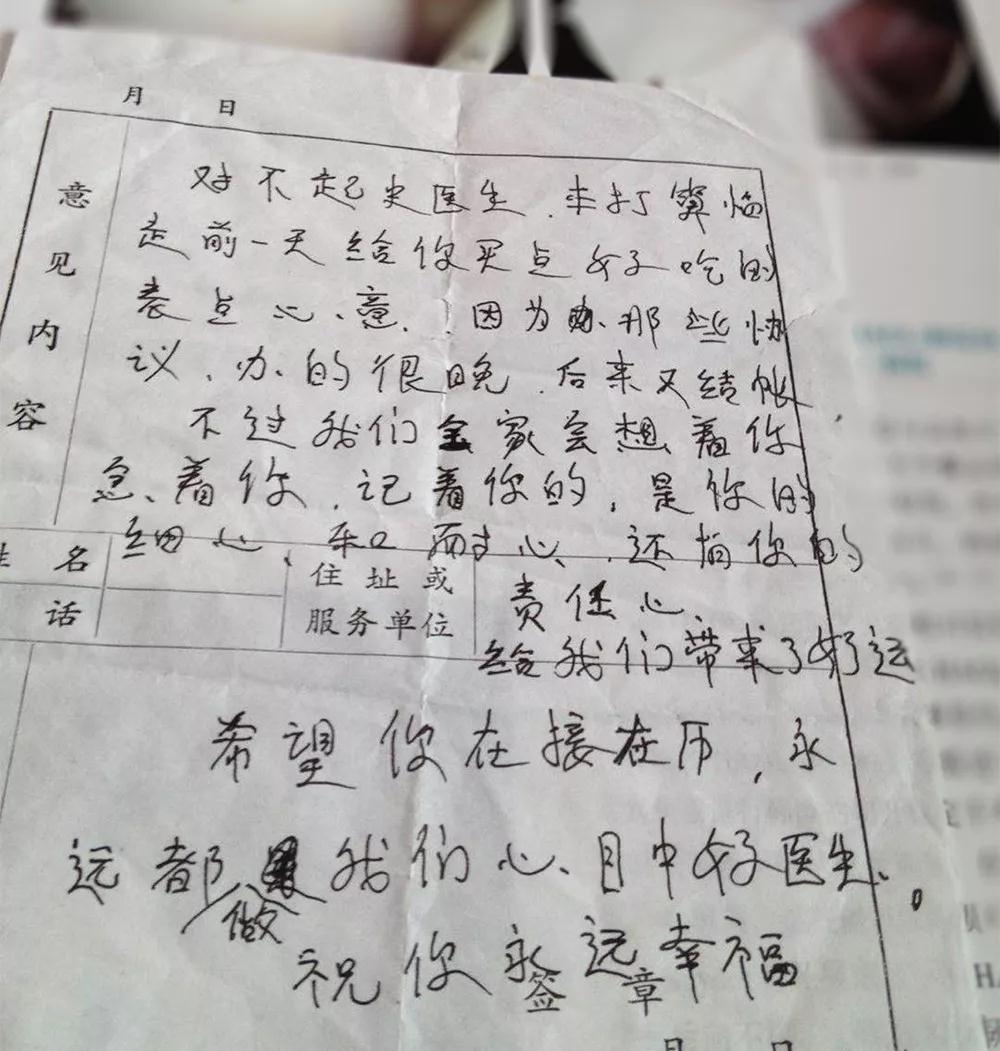 月 日
意见内容
对不起史医生.来打算临
走前一天给你买点好吃的
表点心意.因为办那些协
议.办的很晚.后来又结帐
不过我们全家会想着你
念着你.记着你的,是你的
细心、和耐心、还有你的
姓名
住址或
责任心、
话
服务单位
给我们带来了好运
希望你在接在历,永
远都做我们心目中好医生.
祝你永远幸福
签章
月 日